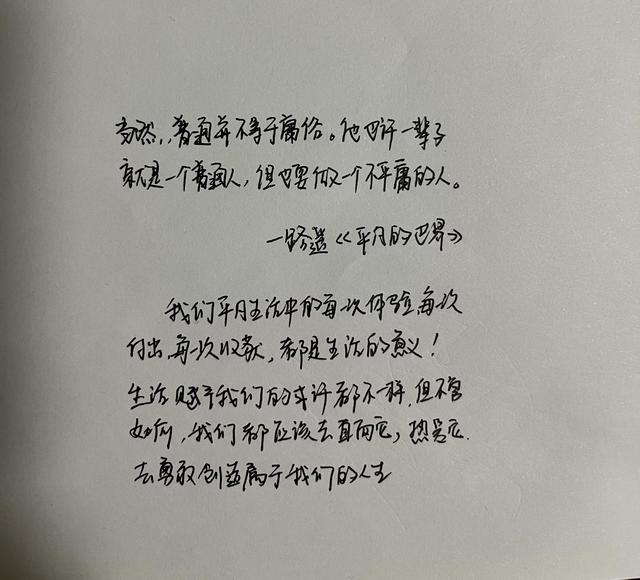 当然，普通并不等于庸俗。他也许一辈子
就是一个普通人，但也要做一个不平庸的人。
—路遥《平凡的世界》
我们平凡生活中的每一次体验，每一次
付出，每一次收获，都是生活的意义！
生活赋予我们的或许都不一样，但不管
如何，我们都应该去直面它，热爱它，
去勇敢创造属于我们的人生